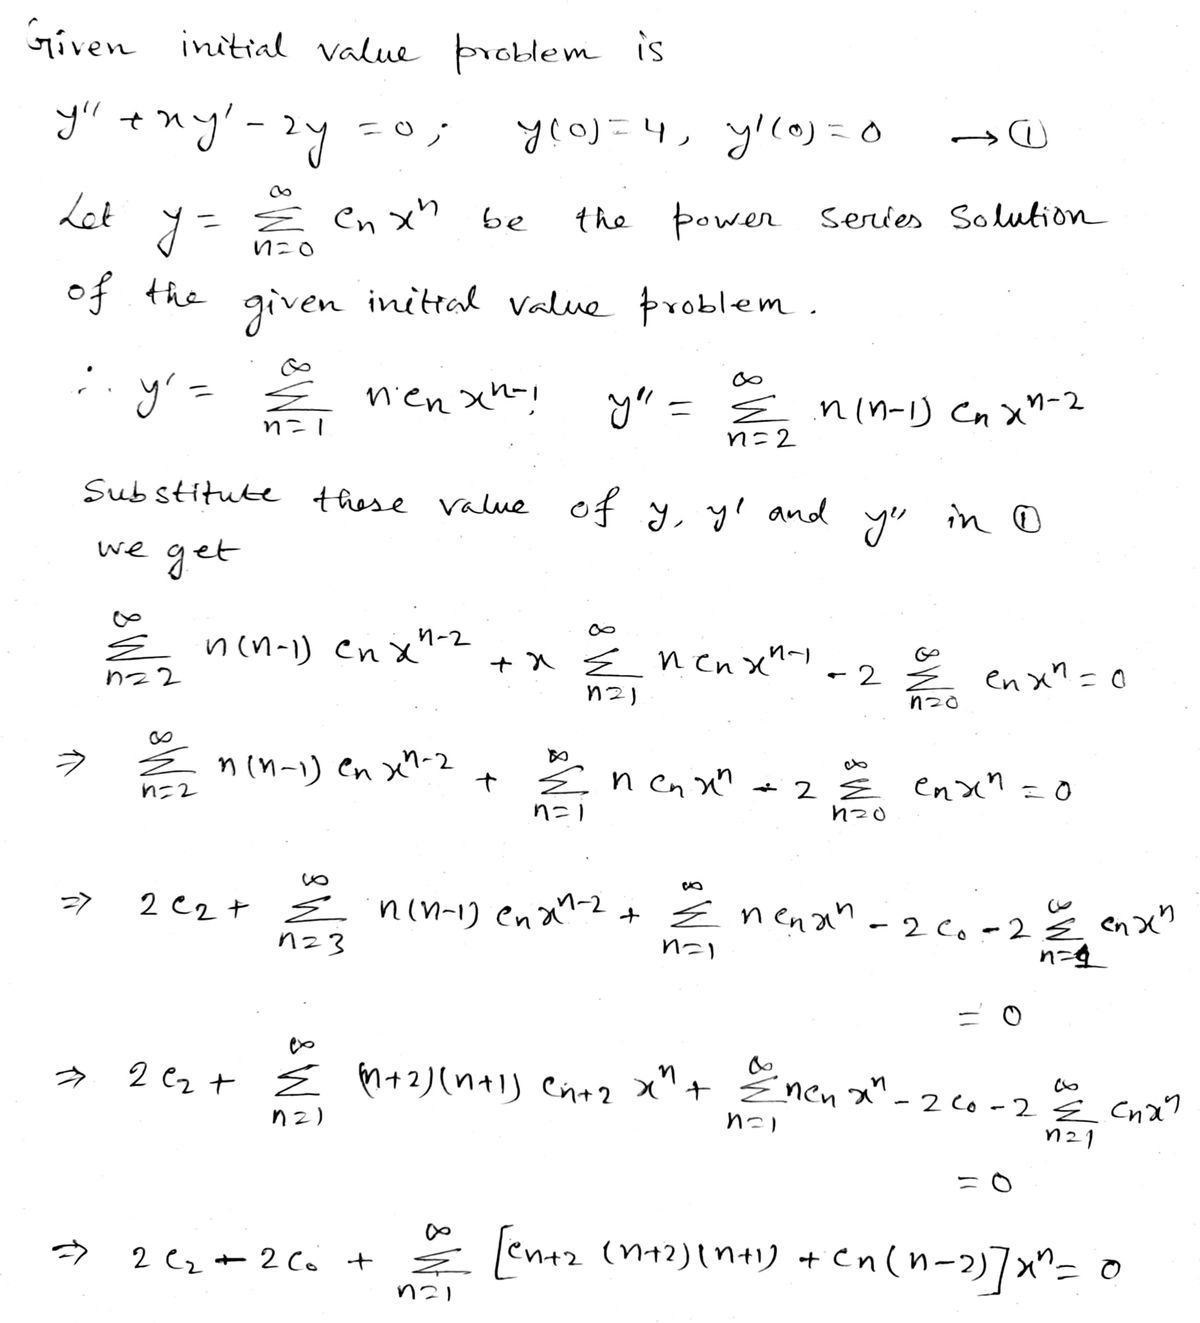 Given initial value problem is
y'' + xy' - 2y = 0; y(0) = 4, y'(0) = 0 → ①
Let y = ∑_{n=0}^{∞} c_n x^n be the power series solution
of the given initial value problem.
∴ y' = ∑_{n=1}^{∞} n c_n x^{n-1} y'' = ∑_{n=2}^{∞} n(n-1) c_n x^{n-2}
Substitute these value of y, y' and y'' in ①
we get
∑_{n=2}^{∞} n(n-1) c_n x^{n-2} + x ∑_{n=1}^{∞} n c_n x^{n-1} - 2 ∑_{n=0}^{∞} c_n x^n = 0
⇒ ∑_{n=2}^{∞} n(n-1) c_n x^{n-2} + ∑_{n=1}^{∞} n c_n x^n - 2 ∑_{n=0}^{∞} c_n x^n = 0
⇒ 2c_2 + ∑_{n=3}^{∞} n(n-1) c_n x^{n-2} + ∑_{n=1}^{∞} n c_n x^n - 2c_0 - 2 ∑_{n=1}^{∞} c_n x^n
= 0
⇒ 2c_2 + ∑_{n=1}^{∞} (n+2)(n+1) c_{n+2} x^n + ∑_{n=1}^{∞} n c_n x^n - 2c_0 - 2 ∑_{n=1}^{∞} c_n x^n
= 0
⇒ 2c_2 - 2c_0 + ∑_{n=1}^{∞} [c_{n+2} (n+2)(n+1) + c_n(n-2)] x^n = 0